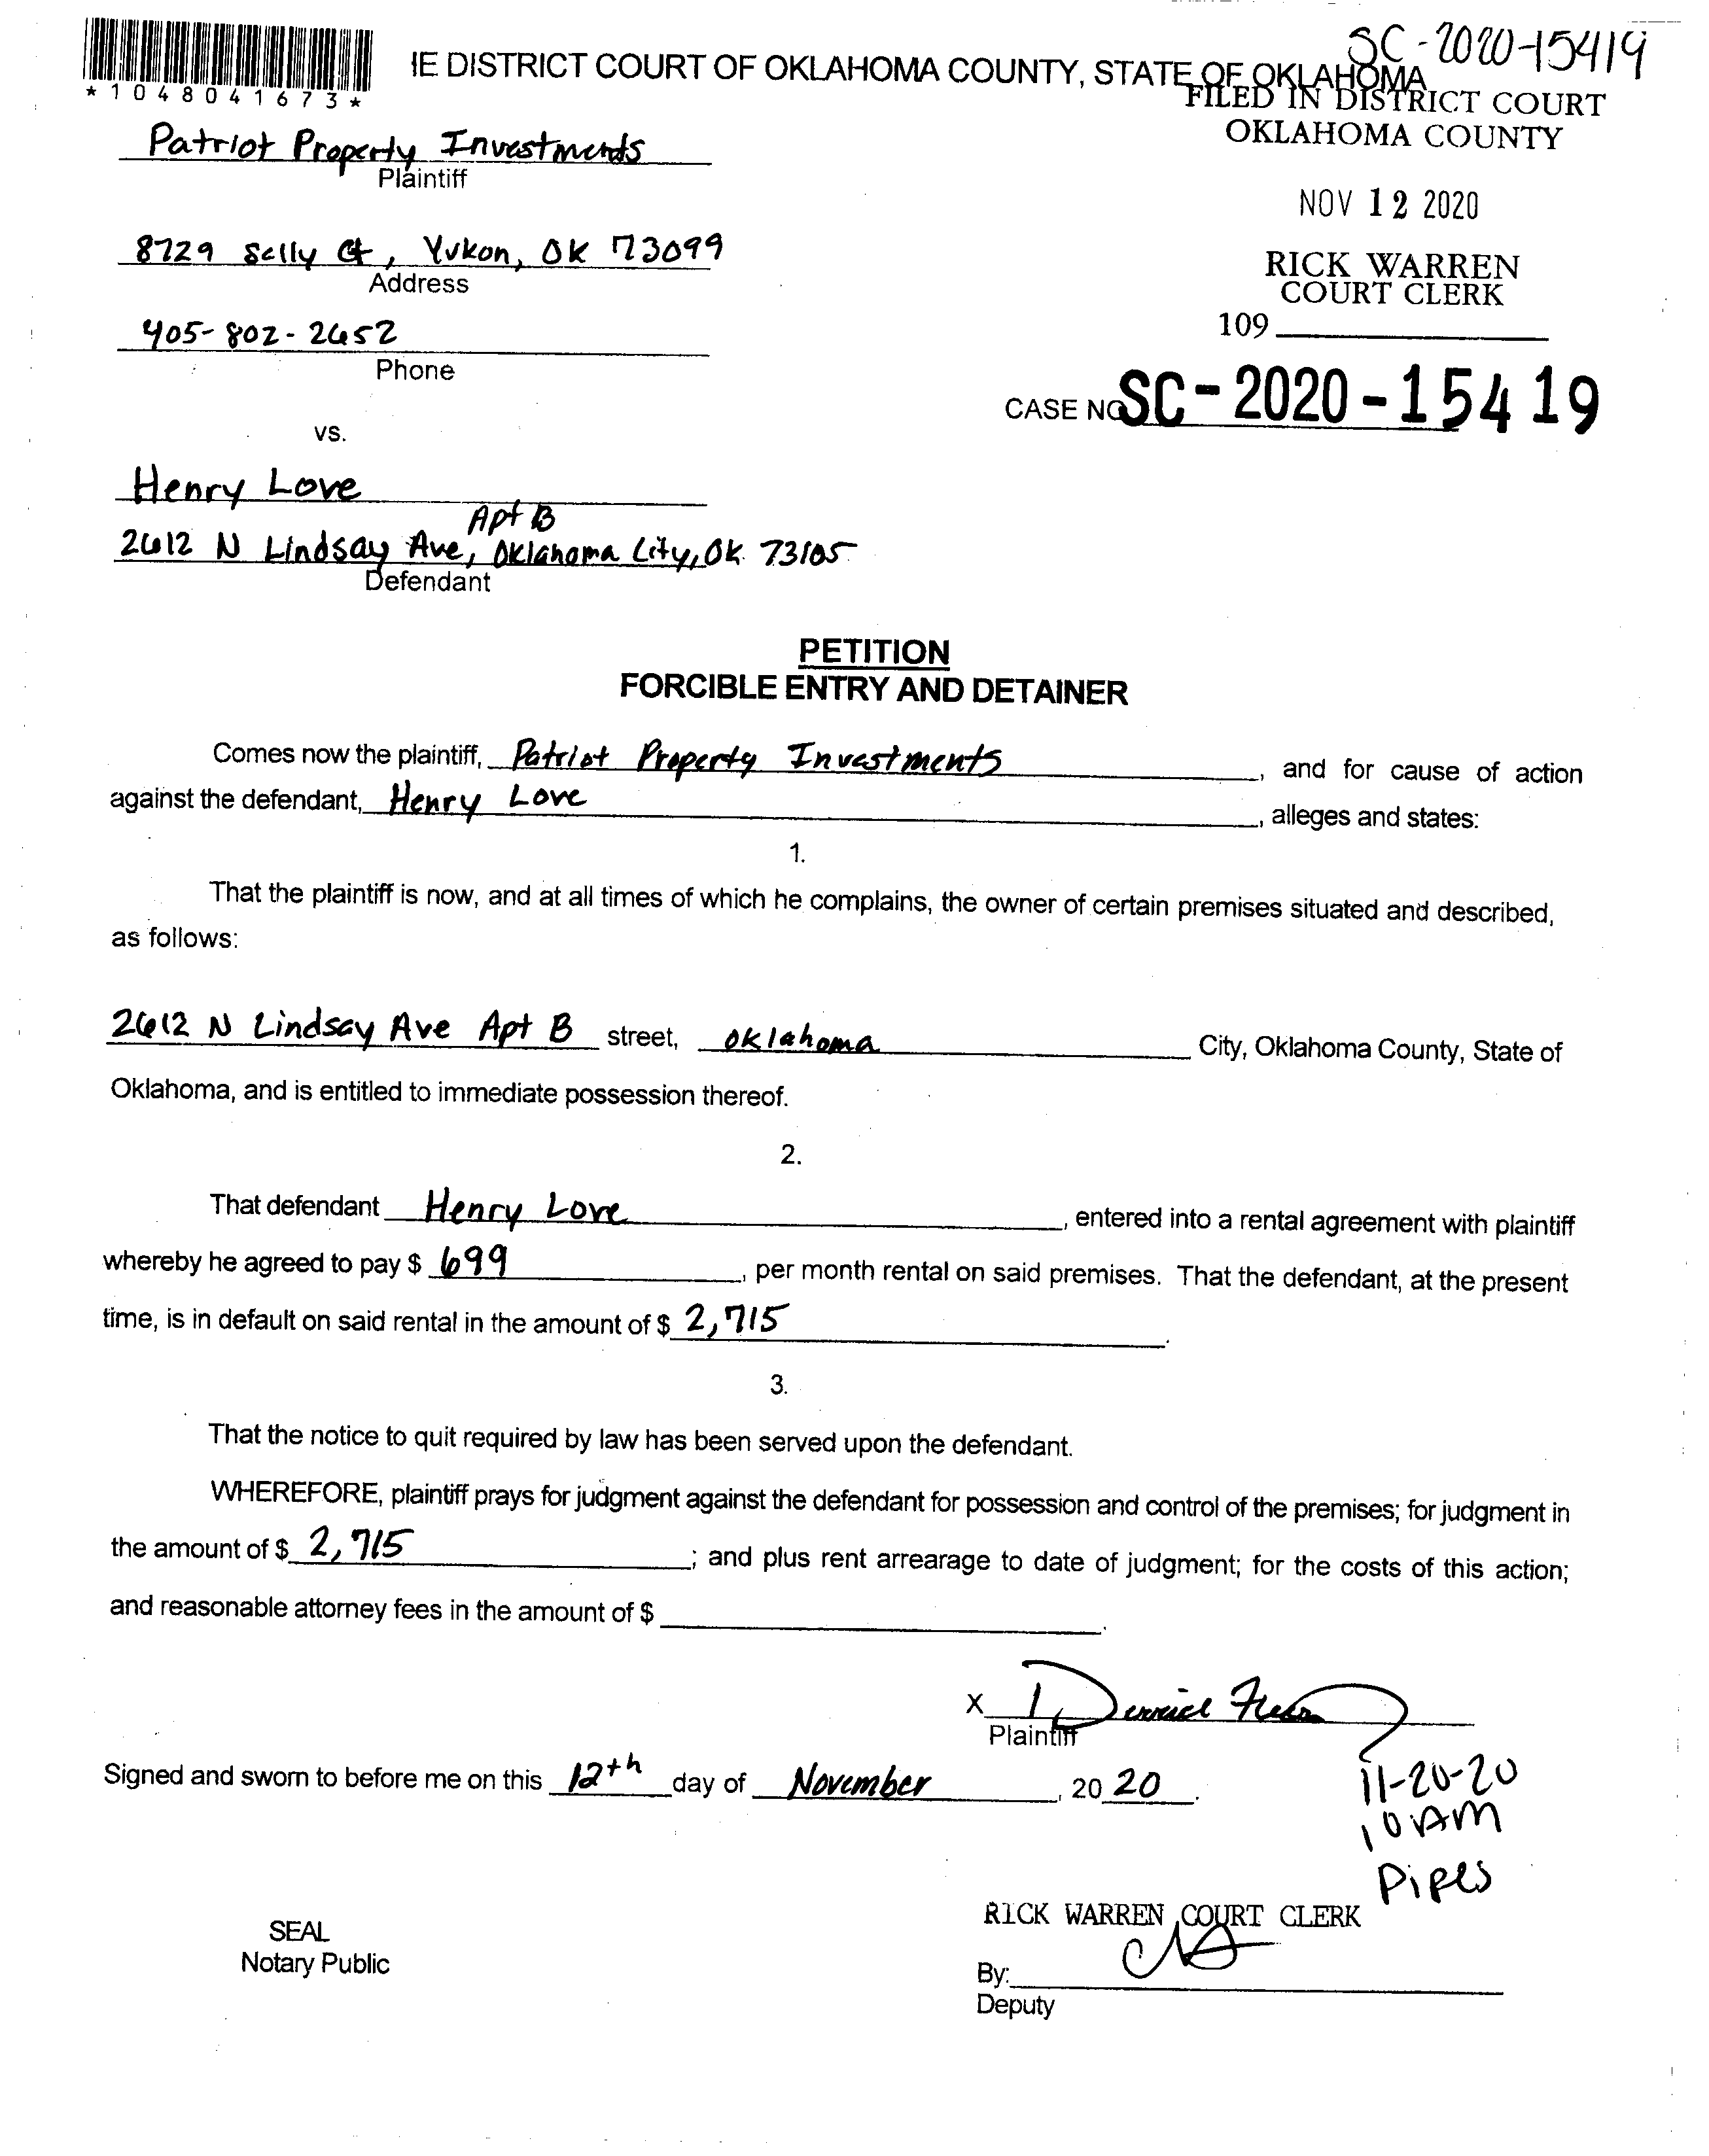 SC-2020-15419
*1048041673*
IE DISTRICT COURT OF OKLAHOMA COUNTY, STATE OF OKLAHOMA
FILED IN DISTRICT COURT
OKLAHOMA COUNTY
Patriot Property Investments
Plaintiff
NOV 12 2020
8729 Selly Ct, Yukon, OK 73099
Address
RICK WARREN
COURT CLERK
109
405-802-2652
Phone
CASE NO SC-2020-15419
vs.
Henry Love
Apt B
2612 N Lindsay Ave, Oklahoma City, OK 73105
Defendant
PETITION
FORCIBLE ENTRY AND DETAINER
Comes now the plaintiff, Patriot Property Investments, and for cause of action
against the defendant, Henry Love, alleges and states:
1.
That the plaintiff is now, and at all times of which he complains, the owner of certain premises situated and described,
as follows:
2612 N Lindsay Ave Apt B street, Oklahoma City, Oklahoma County, State of
Oklahoma, and is entitled to immediate possession thereof.
2.
That defendant Henry Love, entered into a rental agreement with plaintiff
whereby he agreed to pay $ 699, per month rental on said premises. That the defendant, at the present
time, is in default on said rental in the amount of $ 2,715.
3.
That the notice to quit required by law has been served upon the defendant.
WHEREFORE, plaintiff prays for judgment against the defendant for possession and control of the premises; for judgment in
the amount of $ 2,715; and plus rent arrearage to date of judgment; for the costs of this action;
and reasonable attorney fees in the amount of $ .
X
Plaintiff
Signed and sworn to before me on this 12th day of November, 2020.
11-20-20
10 AM
Pipes
RICK WARREN COURT CLERK
SEAL
Notary Public
By:
Deputy